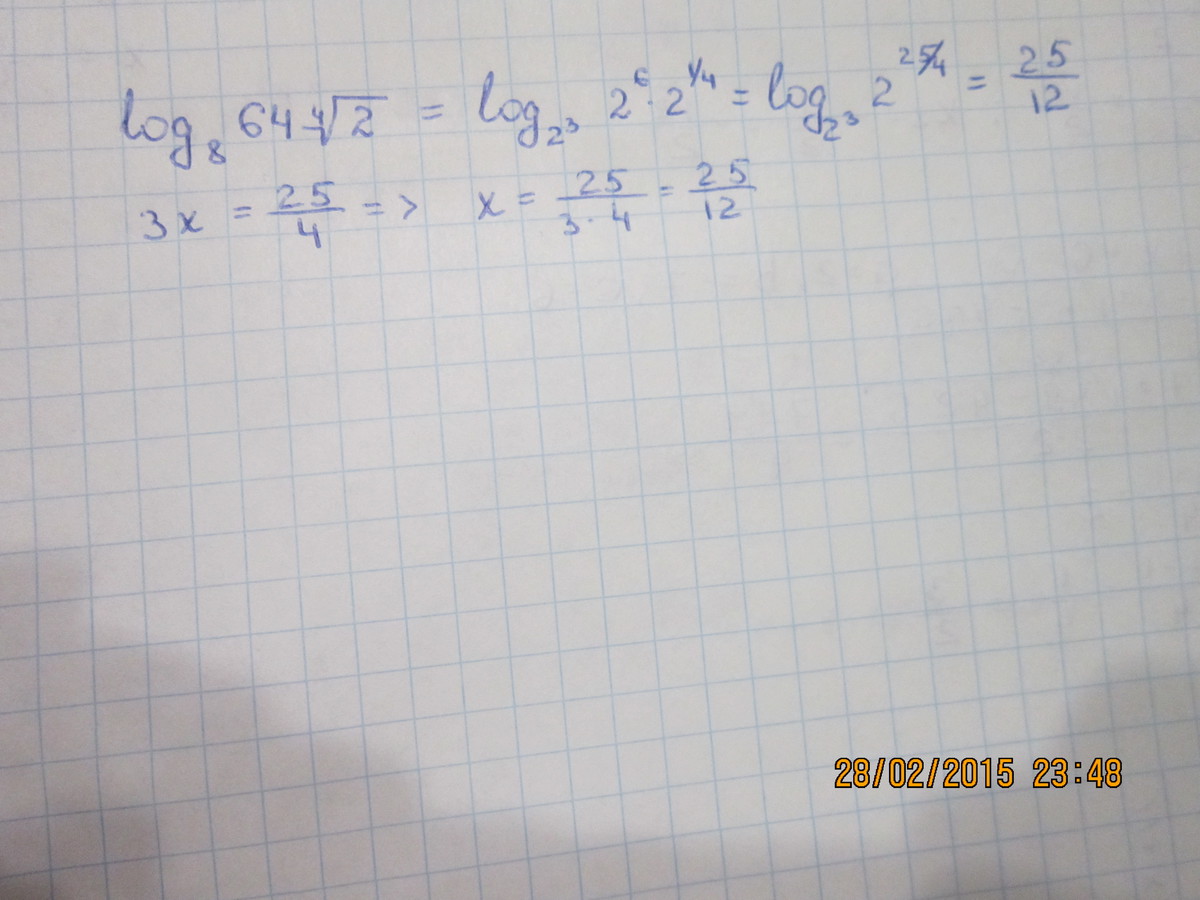 log₈ 64 ∜2 = log_{2³} 2⁶ · 2^{1/4} = log_{2³} 2^{25/4} = 25/12
3x = 25/4 => x = 25/(3·4) = 25/12
28/02/2015 23:48